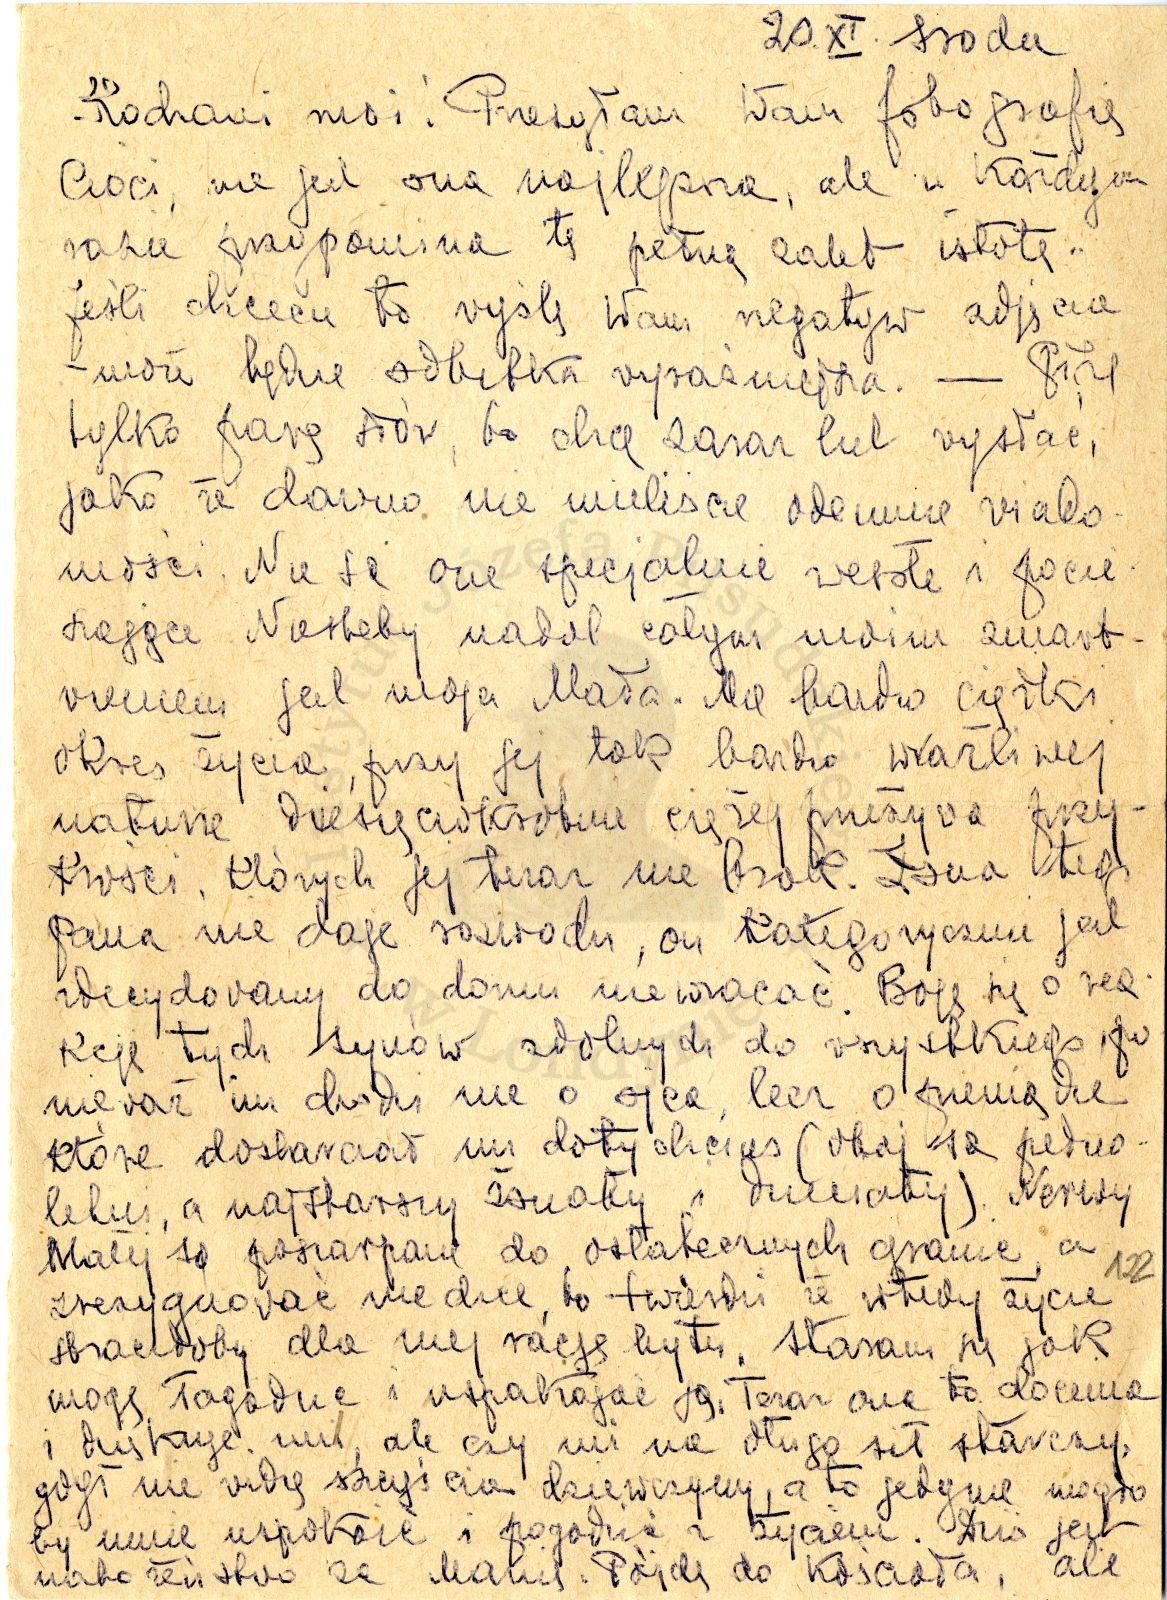 20.XI. środa
Kochani moi! Przesyłam Wam fotografię
Cioci, nie jest ona najlepsza, ale w każdym
razie przypomina tę pełną zalet istotę..
Jeśli chcecie to wyślę Wam negatyw zdjęcia
- może będzie odbitka wyraźniejsza. — Piszę
tylko parę słów, bo chcę zaraz list wysłać,
jako że dawno nie mieliście odemnie wiado-
mości. Nie są one specjalnie wesołe i pocie-
szające Niestety nadal całym moim zmart-
wieniem jest moja Mała. Ma bardzo ciężki
okres życia, przy jej tak bardzo wrażliwej
naturze dziesięciokrotnie ciężej przeżywa przy-
krości, których jej teraz nie brak. Żona tego
Pana nie daje rozwodu, on kategorycznie jest
zdecydowany do domu nie wracać. Boję się o rea-
kcję tych synów zdolnych do wszystkiego, po
nieważ im chodzi nie o ojca, lecz o pieniądze
które dostarczał im dotychczas (obaj są pełno-
letni, a najstarszy żonaty i dzieciaty). Nerwy
Małej są poszarpane do ostatecznych granic, a
122
zrezygnować nie chce, bo twierdzi że wtedy życie
straciłoby dla niej rację bytu. Staram się jak
mogę łagodzić i uspakajać ją. Teraz ona to docenia
i dziękuje mi, ale czy mi na długo sił starczy,
gdyż nie widzę szczęścia dziewczyny, a to jedynie mogło
by mnie uspokoić i pogodzić z życiem. Dziś jest
nabożeństwo za Pójdę do kościoła, ale
Instytut Józefa Piłsudskiego w Londynie